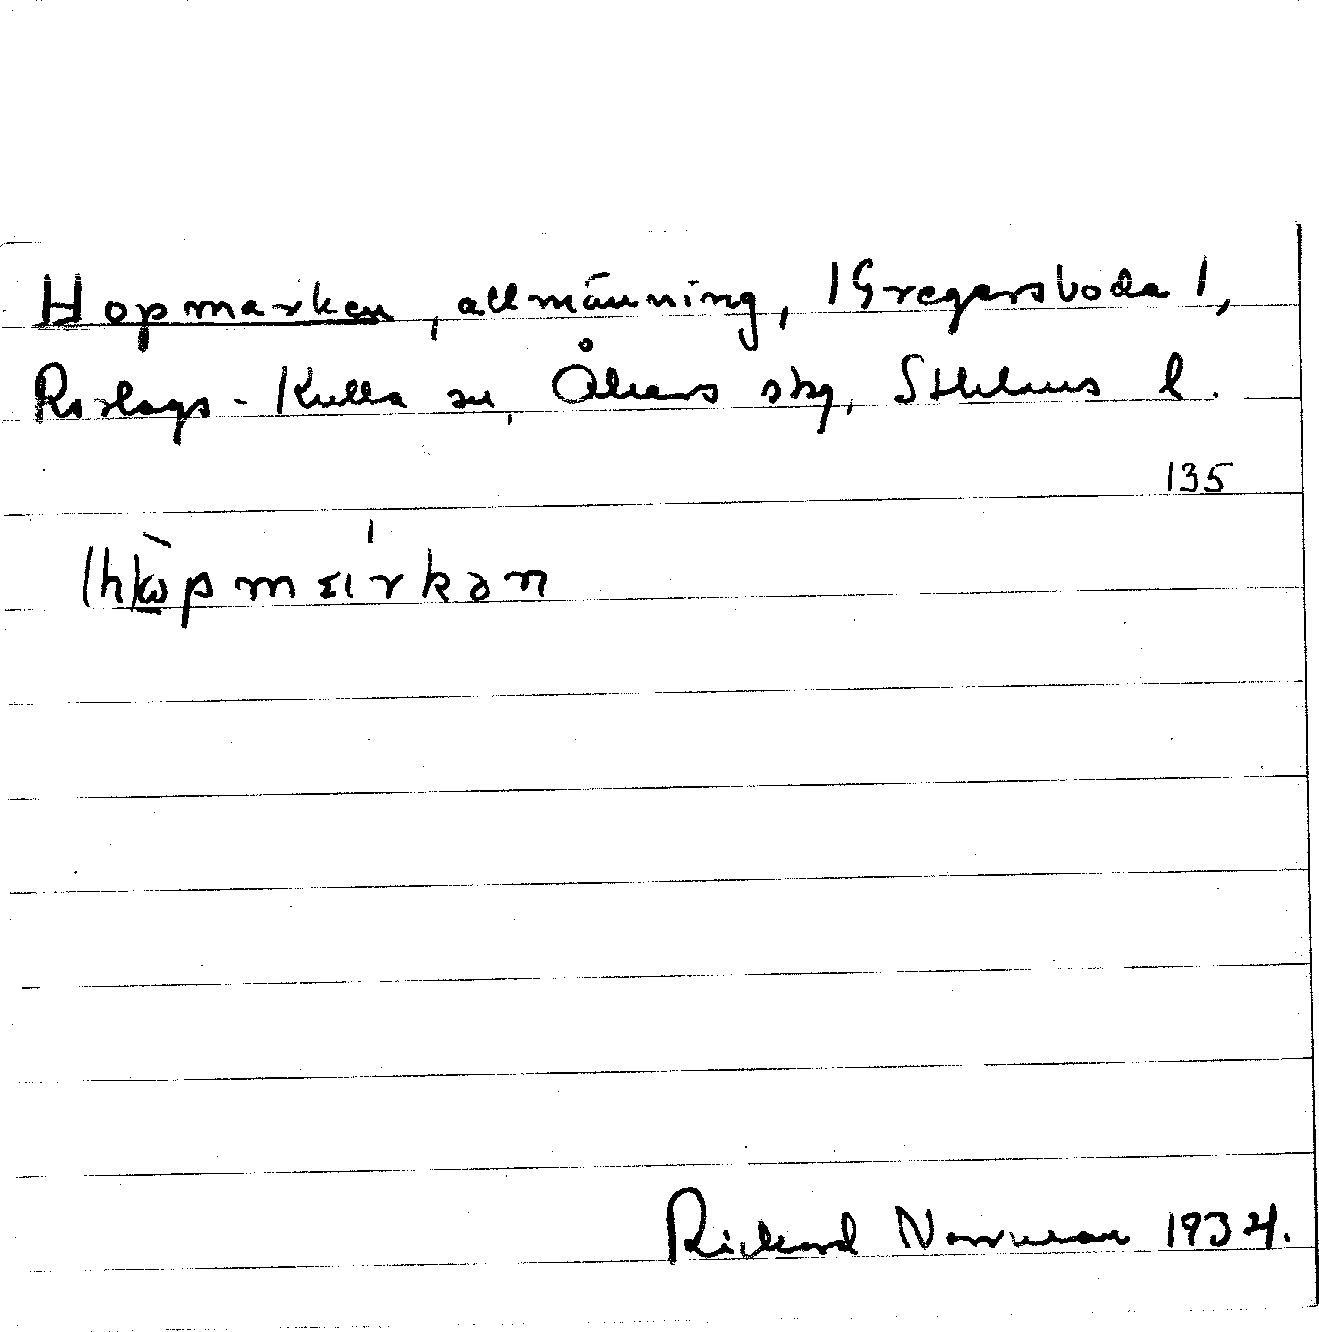 Hopmarken, allmänning, /Gregersboda/,
Roslags-Kulla sn, Åkers skg, Sthlms l.
135
Rickard Norrman 1934.